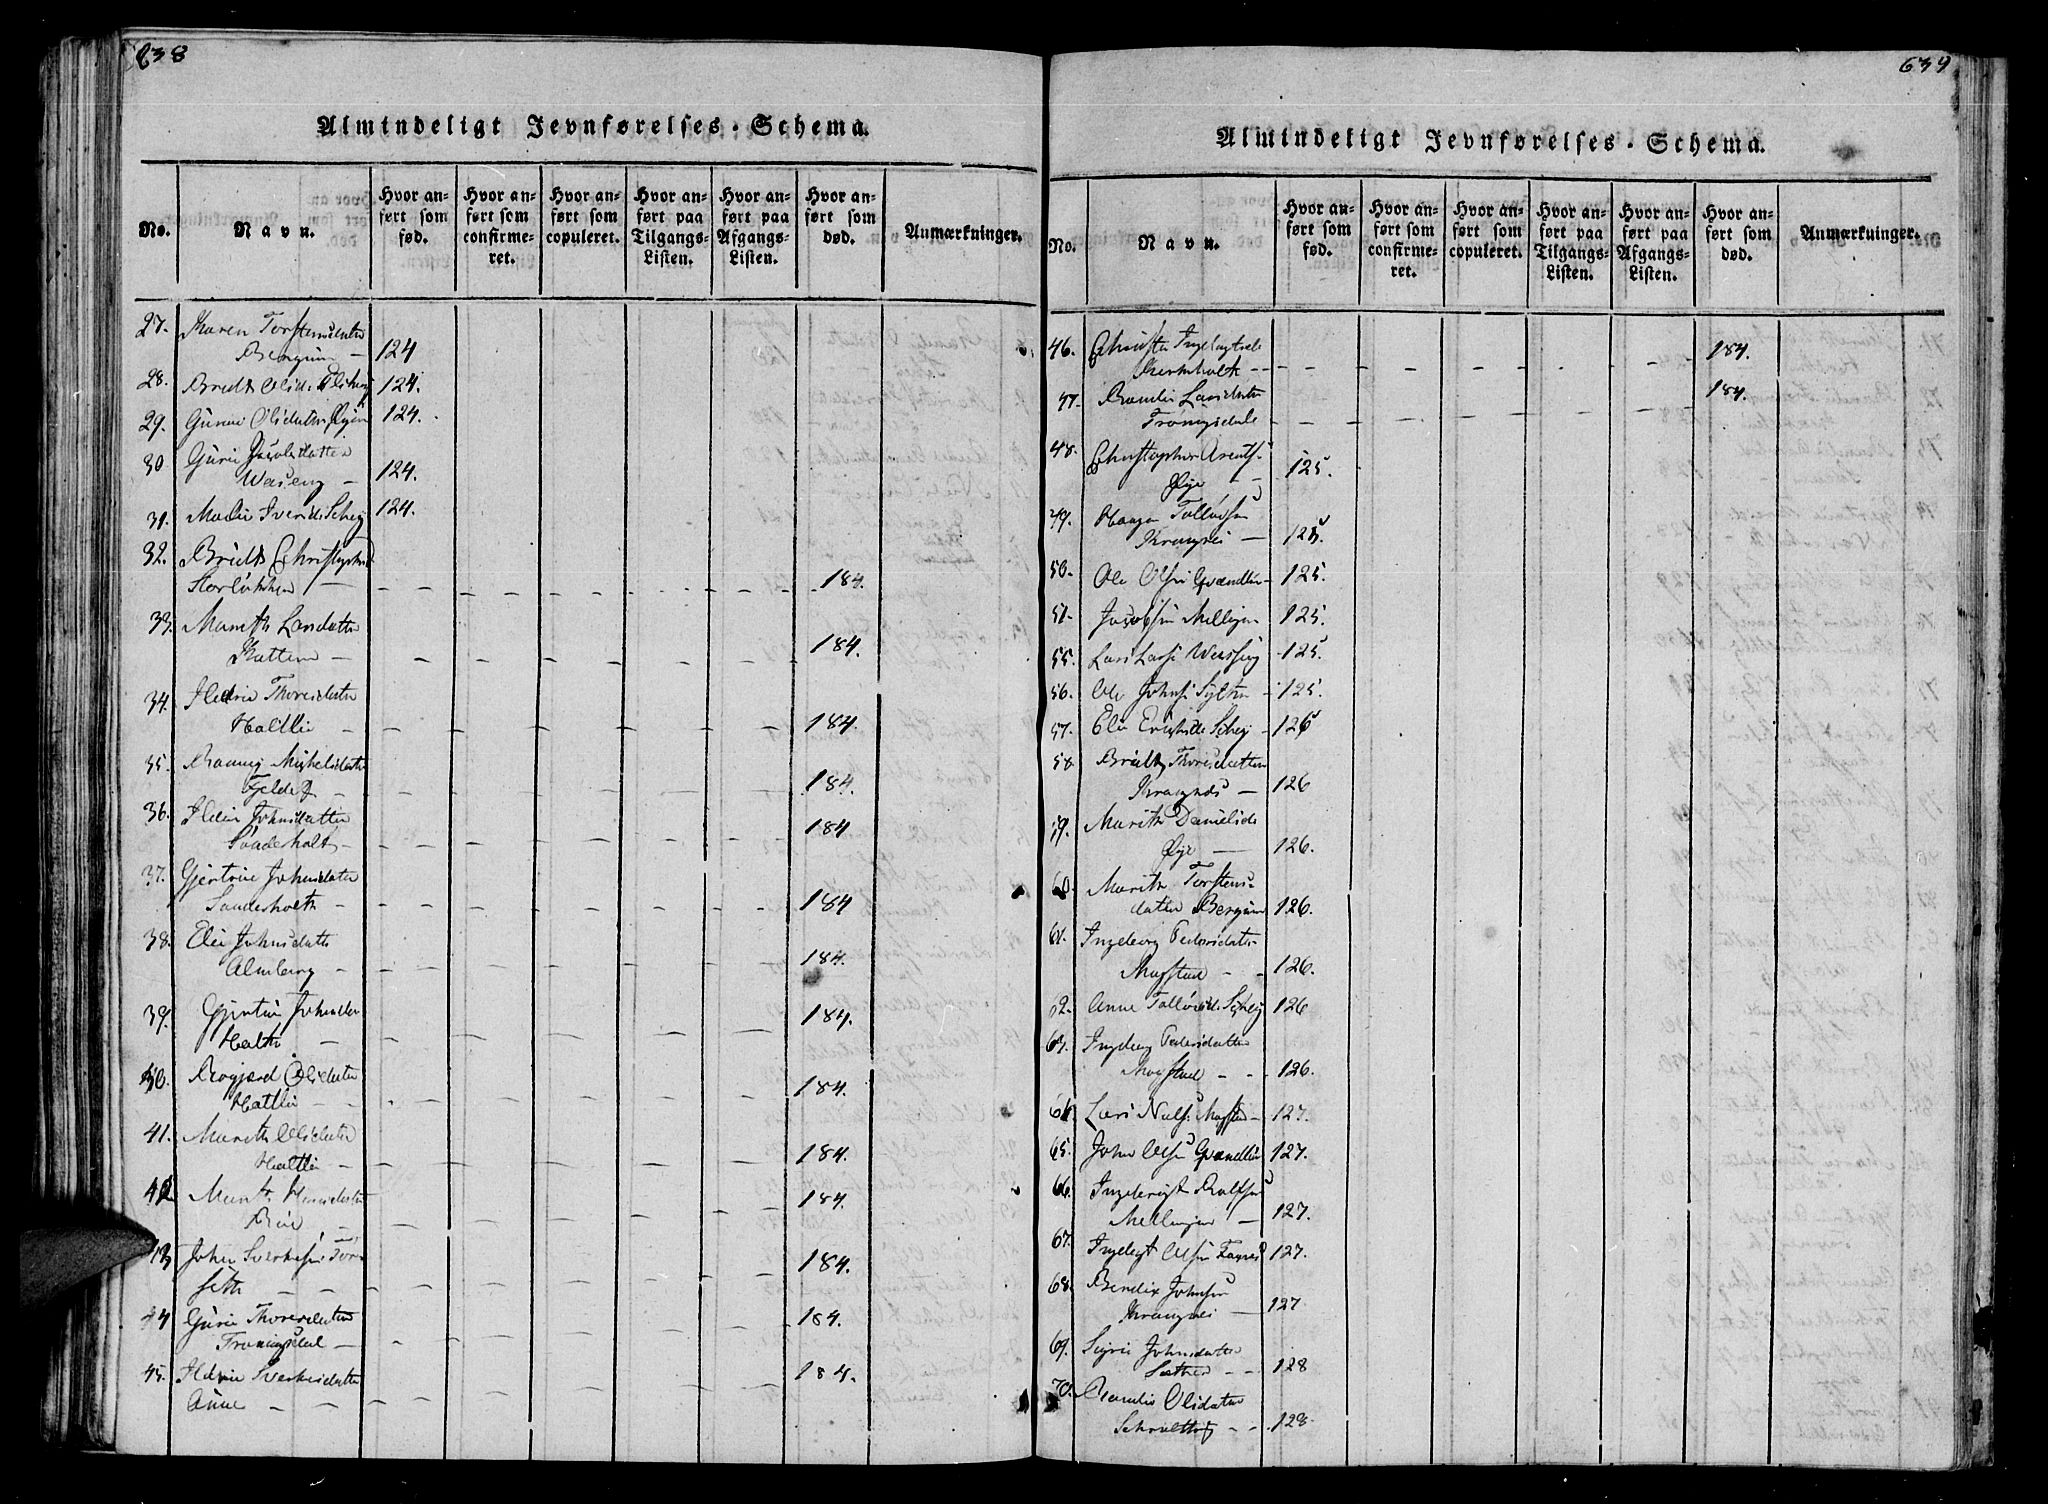 638
Almindeligt Jevnførelses-Schema.
No.
Navn.
Hvor anført som fød.
Hvor anført som confirmeret.
Hvor anført som copuleret.
Hvor anført paa Tilgangs-Listen.
Hvor anført paa Afgangs-Listen.
Hvor anført som død.
Anmærkninger.
27. Maren Torstensdatter
Bergum – 124
28. Bridt Olsd. 124.
29. Gunni Olsdatter Øyen 124.
30 Guri Jacobsdatter
Waseng – 124.
31. Mali Iversd. Schey 124.
32. Bridt Christoph
Storløkken – 184.
33. Marith Larsdatter
Kattem – 184.
34. Ildrie Thoresdatter
Haltlie – 184.
35. Ranneg Michelsdatter
Fjelde – 184.
36. Ildri Johnsdatter
Sønderholt – 184
37. Gjertrue Johnsdatter
Sonderholth – 184
38. Eli Johnsdatter
Almberg – 184.
39. Gjertru Johnsdatter
Halth – 184.
40. Rogjærd Olsdatter
Hatlie – 184.
41. Marith Olsdatter
Haltlie – 184.
42. Marit Hansdatter
Bøe – 184.
43 John Sverkesen Tore
seth – 184.
44 Guri Thoresdatter
Tronnesdal – 184.
45. Ildrie Sverkesdatter
Aune – 184.
639
Almindeligt Jevnførelses-Schema.
No.
Navn.
Hvor anført som fød.
Hvor anført som confirmeret.
Hvor anført som copuleret.
Hvor anført paa Tilgangs-Listen.
Hvor anført paa Afgangs-Listen.
Hvor anført som død.
Anmærkninger.
46. Ingebrigtsd.
184.
47. Randi Larsdatter 184.
Trønesdale
48. Christopher Arents.
Øye – 125.
49. Haagen Tollevsen
Krangnes – 125
50. Ole Olsen Qvendlie – 125.
51. Jacobsen Mellingen 125.
55. Lars Larss. Wasseng 125.
56. Ole Johns. Sylthe – 125.
57. Eli Erichsd. Schey – 126
58. Bridt Thoresdatter
Krangnes – 126
59. Marith Danielsd.
Øye – 126.
60. Marith Torstens-
datter Bergum 126.
61. Ingeborg Pedersdatter
Magstad – 126.
62. Anne Tollevsd. Schey 126
63. Ingeborg Pedersdatter
Mogstad – 126.
64. Lars Niels. Magstad – 127.
65. John Olsen Qvendlie 127.
66. Ingebrigt
Mellingen – 127.
67. Ingebrigt Olsen 127.
68. Bendix Johnsen
Krangnes – 127
69. Sigri Johnsdatter
Sæther – 128
70. Randi Olsdatter
128